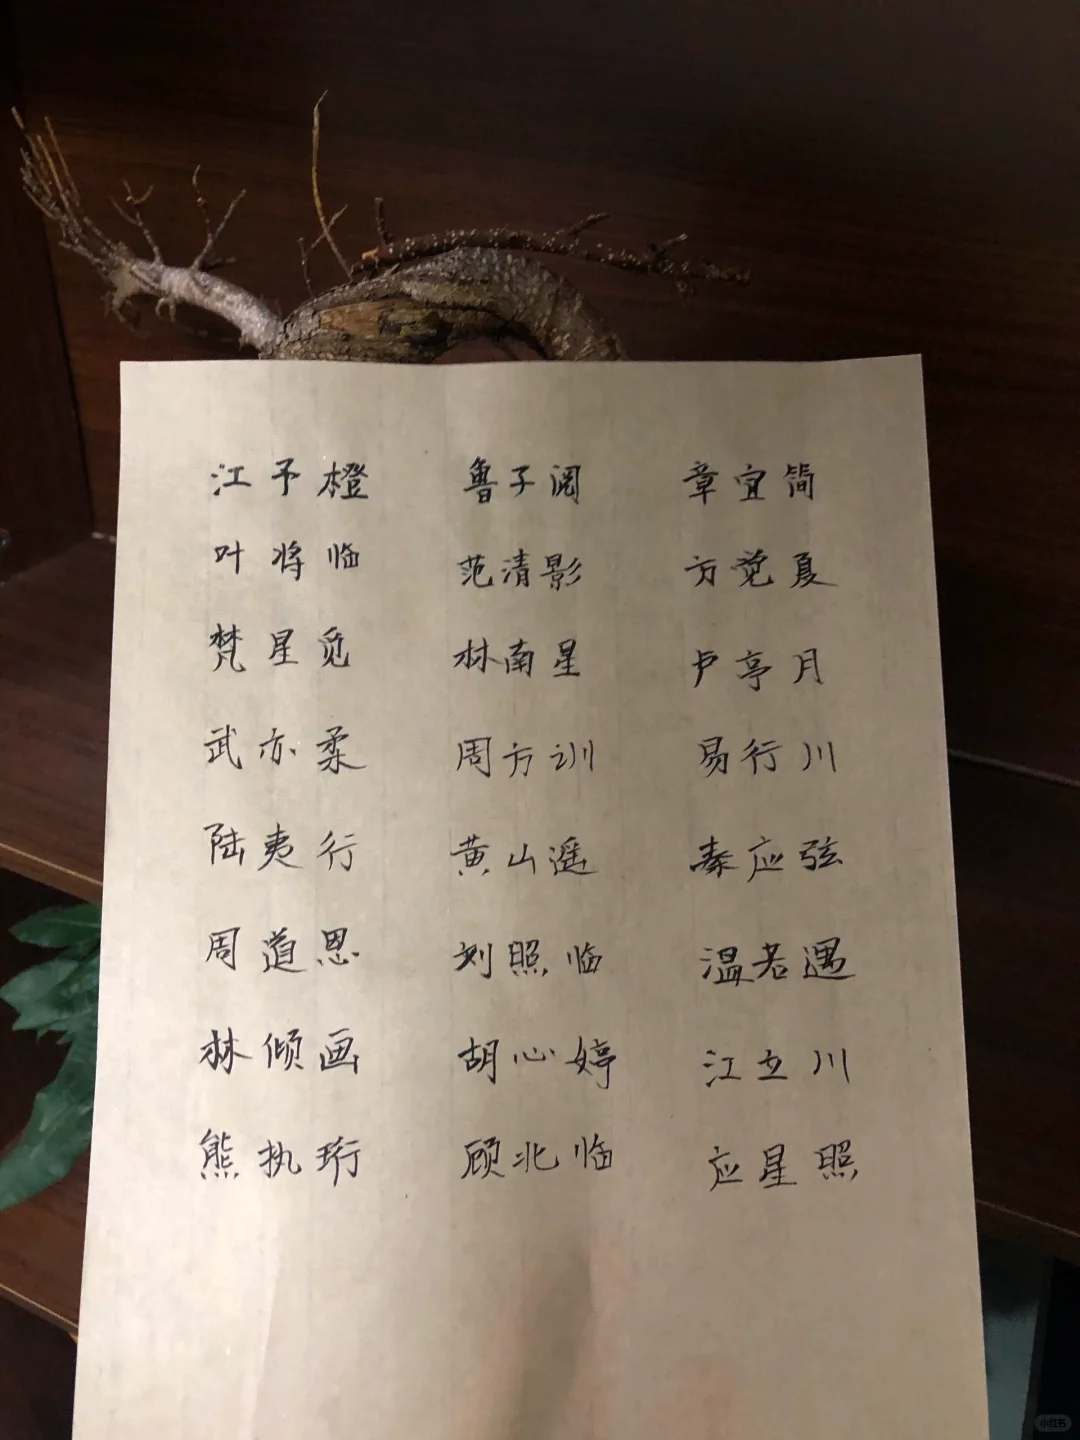 江予橙 鲁子阅 章宜简
叶将临 范清影 方觉夏
梵星觅 林南星 卢亭月
武亦柔 周方训 易行川
陆夷行 黄山遥 秦应弦
周道思 刘照临 温若遇
林倾画 胡心婷 江立川
熊执珩 顾北临 应星照
小红书